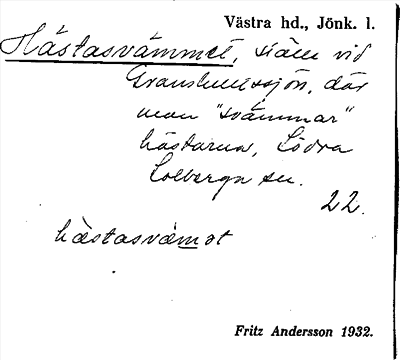 Västra hd., Jönk. l.
Hästasvämmet, ställe vid
där
man "svämmar"
hästarna, Södra
Solberga sn.
22.
hästasvämot
Fritz Andersson 1932.